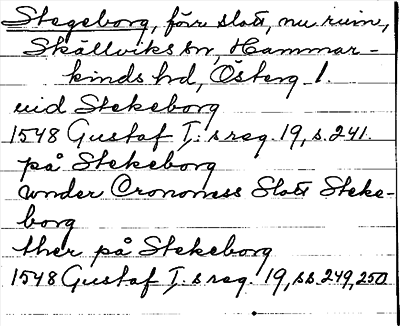 Stegeborg, förr slott, nu ruin,
Skällviks sn, Hammar-
kinds hd, Österg. l.
uid Stekeborg
1548 Gustaf I:s reg. 19, s. 241.
på Stekeborg
vnder Crononess Slott Steke-
borg
ther på Stekeborg
1548 Gustaf I:s reg. 19, ss. 249, 250